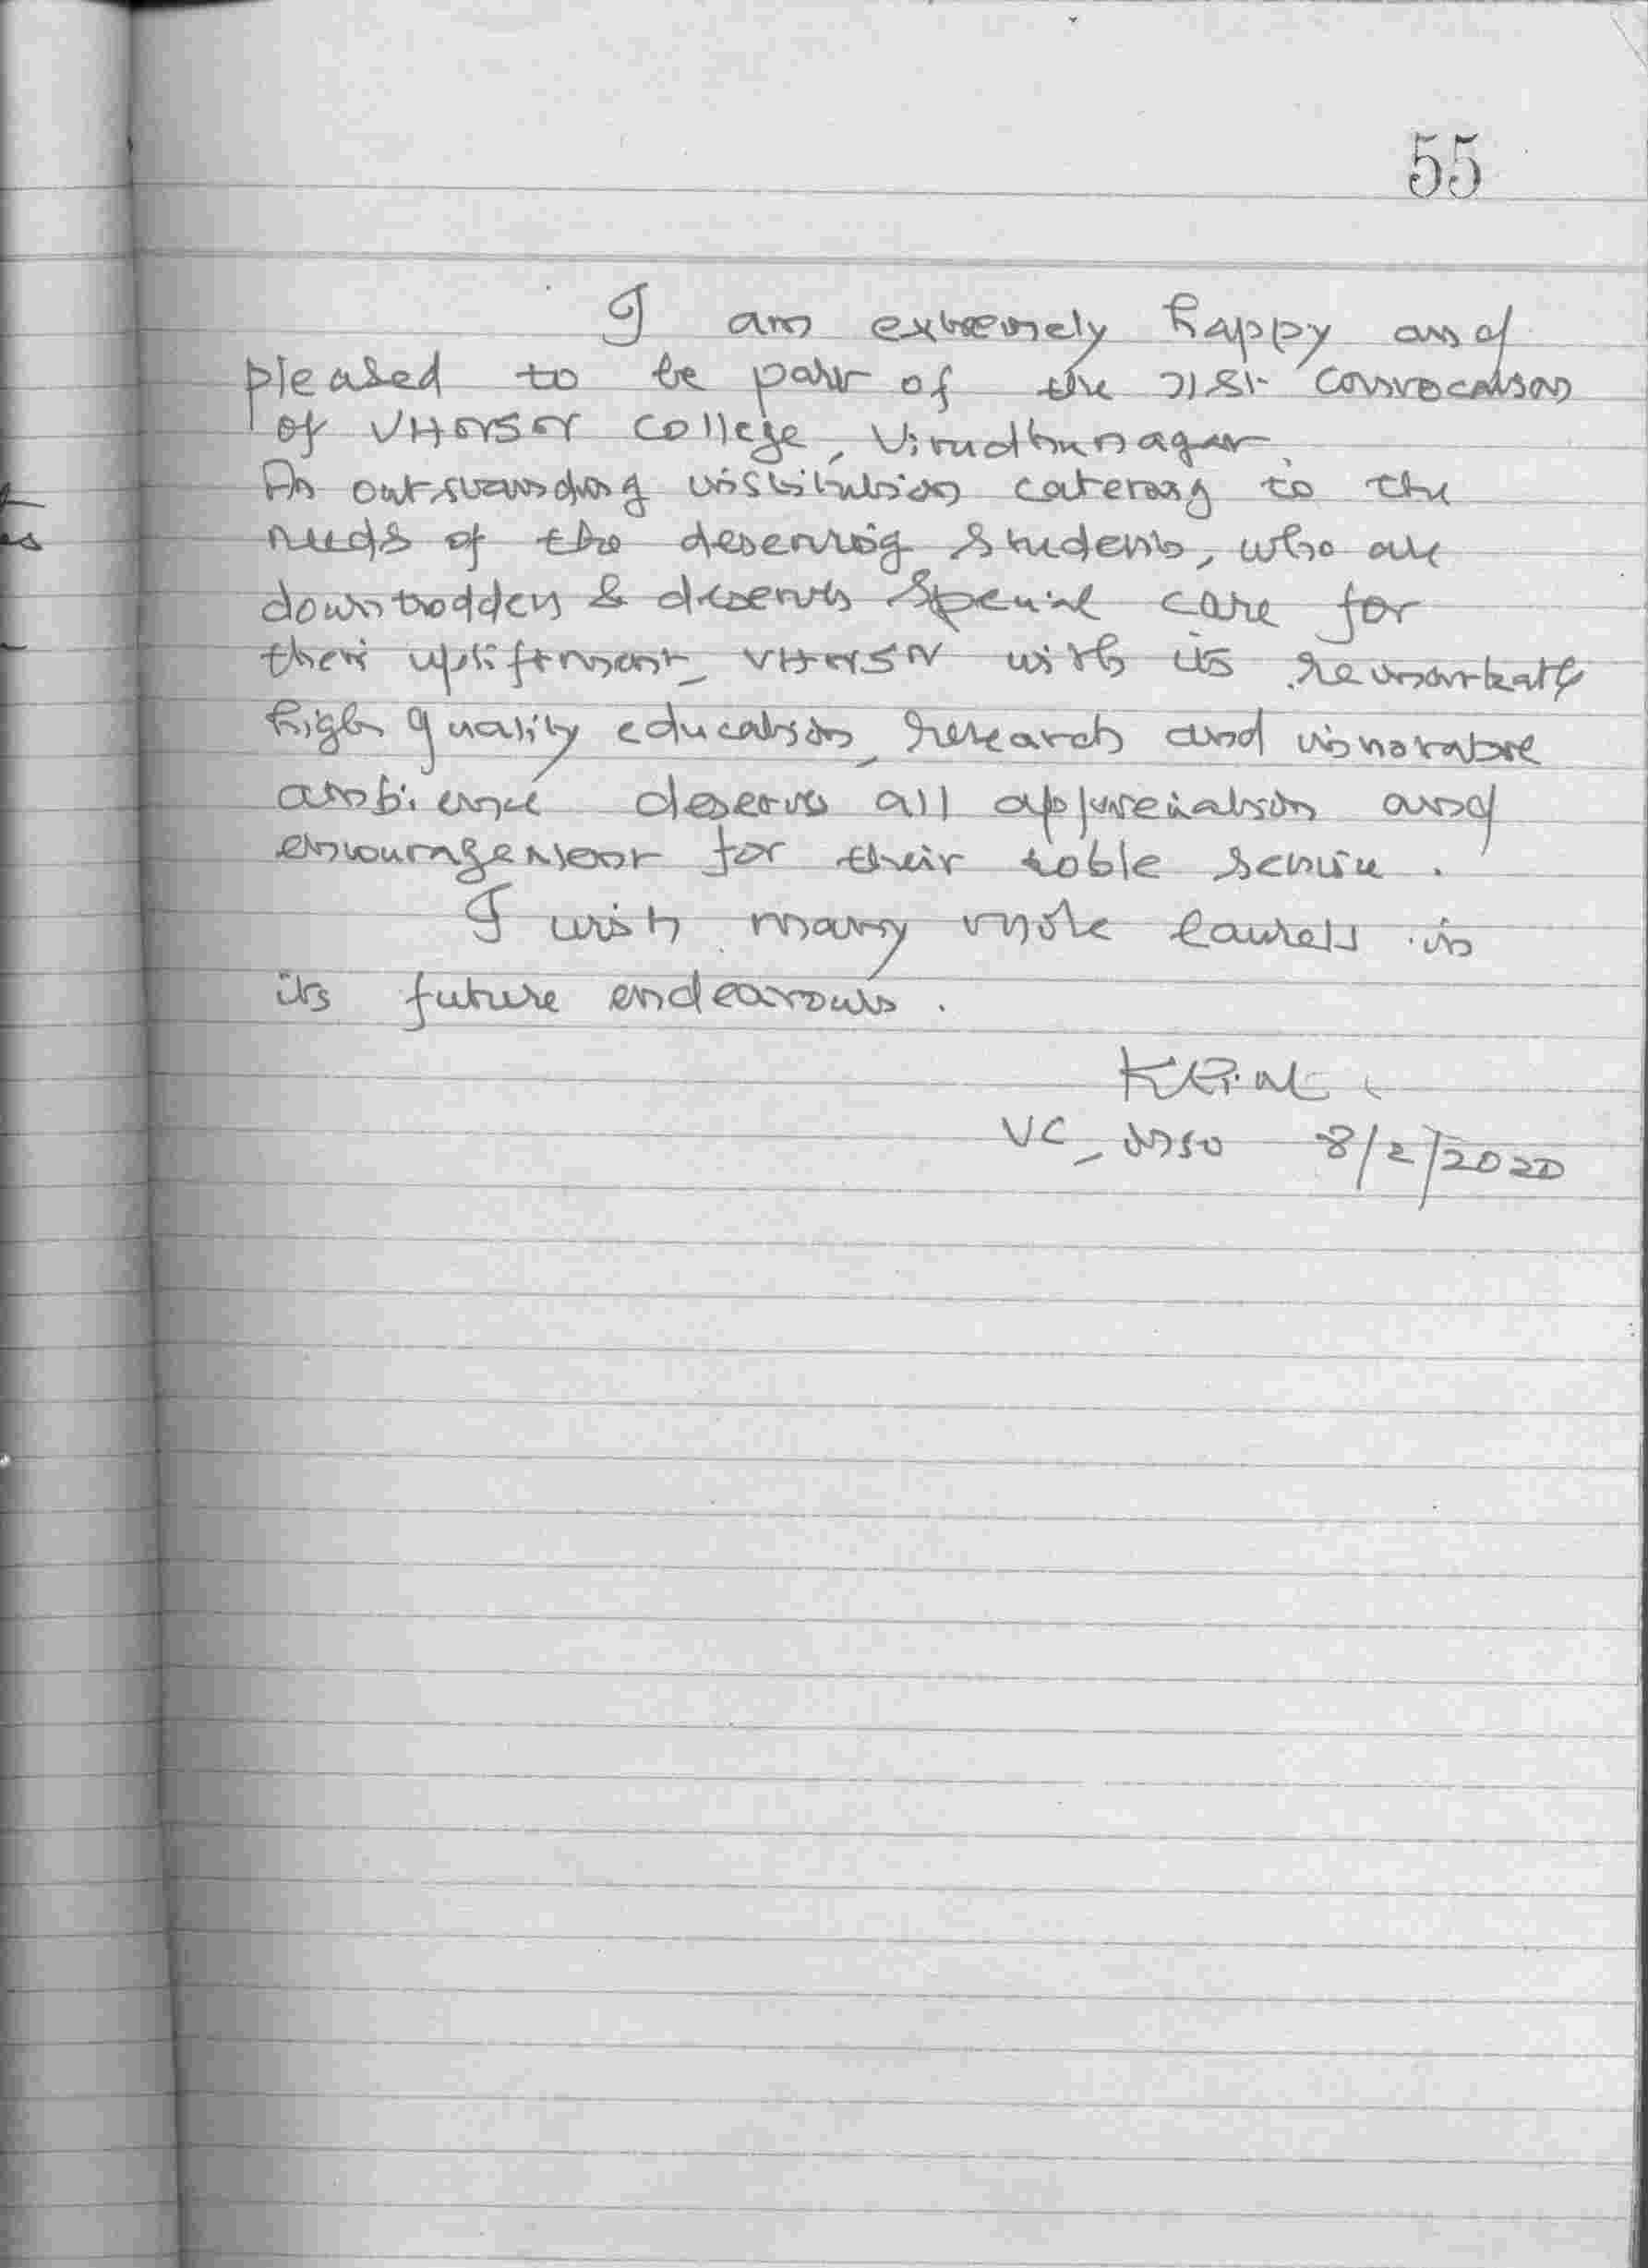 55
I am extremely happy and
pleased to be part of the 71st convocation
of VHNSN College, Virudhunagar.
An outstanding institution catering to the
needs of the deserving students, who are
downtrodden & deserves special care for
their upliftment, VHNSN with its remarkable
high quality education, research and innovative
ambience deserves all appreciation and
encouragement for their noble service.
I wish many more laurels in
its future endeavours.
VC 8/2/2020